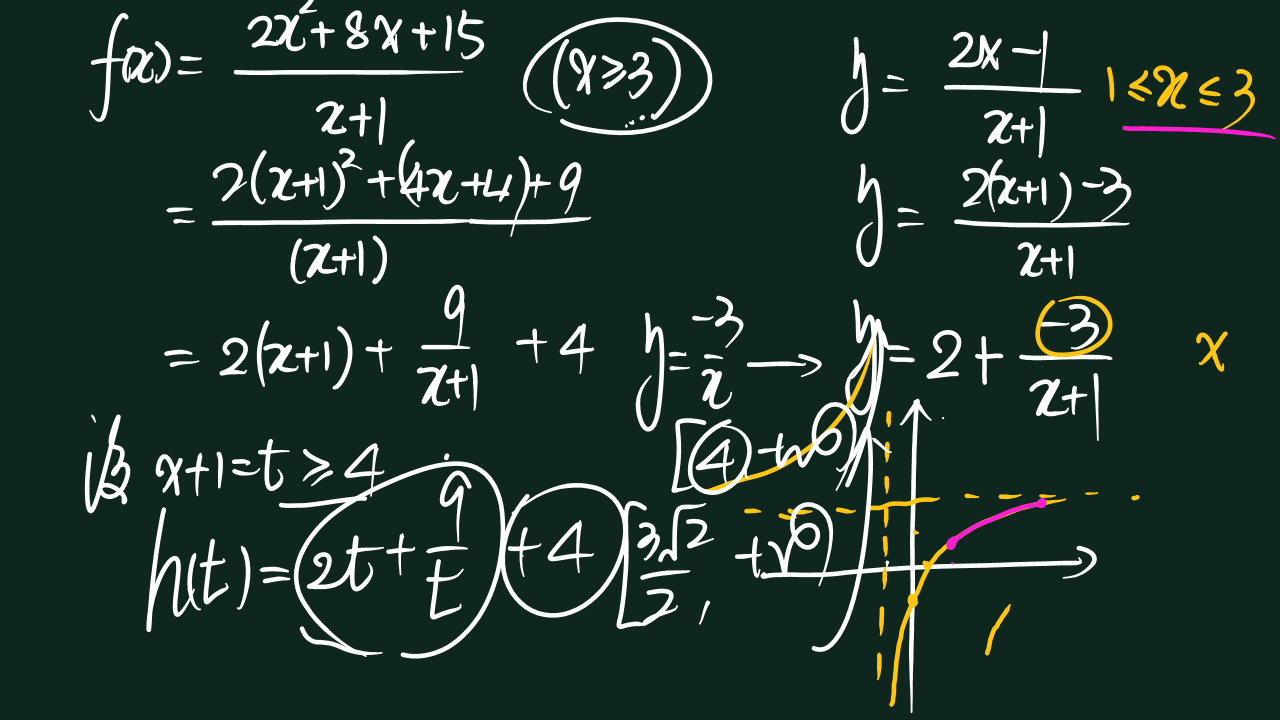 f(x) = (2x²+8x+15)/(x+1) (x≥3)
= (2(x+1)²+(4x+4)+9)/(x+1)
= 2(x+1) + 9/(x+1) + 4
设 x+1=t≥4
h(t) = 2t + 9/t + 4
[3√2/2, +∞)
[4, +∞)
y = (2x-1)/(x+1) 1≤x≤3
y = (2(x+1)-3)/(x+1)
y = -3/x → y = 2 + (-3)/(x+1) x